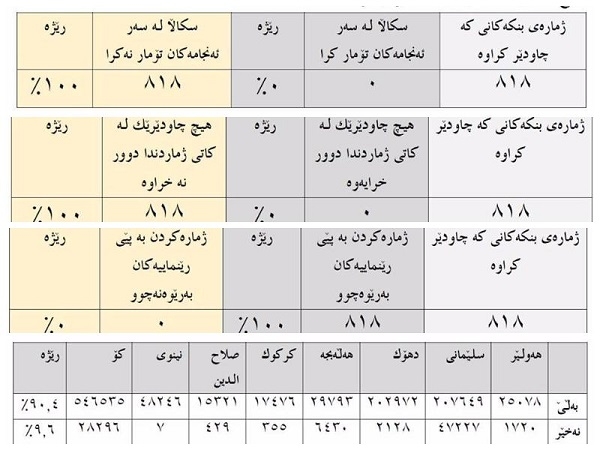 ژمارەی بنكەكانی كە چاودێر كراوە	سكاڵا لە سەر ئەنجامەكان تۆمار كرا	رێژە	سكاڵا لە سەر ئەنجامەكان تۆمار نەكرا	رێژە
٨١٨	٠	٪٠	٨١٨	٪١٠٠
ژمارەی بنكەكانی كە چاودێر كراوە	هیچ چاودێرێك لە كاتی ژماردندا دوور خرایەوە	رێژە	هیچ چاودێرێك لە كاتی ژماردندا دوور نە خراوە	رێژە
٨١٨	٠	٪٠	٨١٨	٪١٠٠
ژمارەی بنكەكانی كە چاودێر كراوە	ژمارەكردن بە پێی رێنماییەكان بەرێوەچوو	رێژە	ژمارەكردن بە پێی رێنماییەكان بەرێوەنەچوو	رێژە
٨١٨	٨١٨	٪١٠٠	٠	٪٠
هەولێر	سلێمانی	دهۆك	هەڵەبجە	كركوك	صلاح الدین	نینوی	كۆ	رێژە
بەڵێ	٢٥٠٧٨	٢٠٧٦٤٩	٢٠٢٩٧٢	٢٩٧٩٣	١٧٤٧٦	١٥٣٢١	٤٨٢٤٦	٥٤٦٥٣٥	٪٩٠,٤
نەخێر	١٧٢٠	٤٧٢٢٧	٢١٢٨	٦٤٣٠	٣٥٥	٤٢٩	٧	٢٨٢٩٦	٪٩,٦